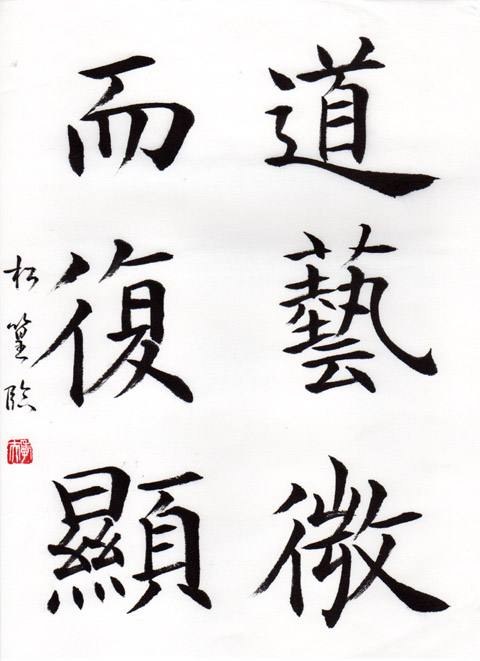 道藝微
而復顯
松篁臨